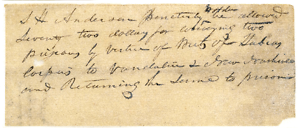 J H Anderson be allowed
Seventy two dollars for conveying two
prisoners by virtue of Writs of Habeas
Corpus to Vandalia &
and Returning the Same to prison